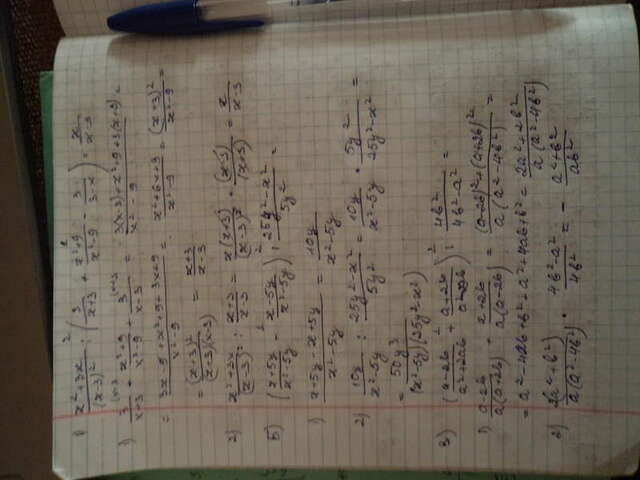 1) (x²+3x)/(x-3)² : (3/(x+3) + (x²+9)/(x²-9) - 3/(3-x)) = x/(x-3)
1) 3/(x+3) + (x²+9)/(x²-9) + 3/(x-3) = (3(x-3)+x²+9+3(x+3))/(x²-9) =
= (3x-9+x²+9+3x+9)/(x²-9) = (x²+6x+9)/(x²-9) = (x+3)²/(x²-9) =
= (x+3)²/((x+3)(x-3)) = (x+3)/(x-3)
2) (x²+3x)/(x-3)² : (x+3)/(x-3) = x(x+3)/(x-3)² · (x-3)/(x+3) = x/(x-3)
Б) ((x+5y)/(x²-5y) - (x-5y)/(x²-5y)) : (25y²-x²)/5y² =
1) (x+5y-x+5y)/(x²-5y) = 10y/(x²-5y)
2) 10y/(x²-5y) : (25y²-x²)/5y² = 10y/(x²-5y) · 5y²/(25y²-x²) =
= 50y³/((x²-5y)(25y²-x²))
3) ((a-2b)/(a²+2ab) + (a+2b)/(a²-2ab)) : 4b²/(4b²-a²) =
1) (a-2b)/(a(a+2b)) + (a+2b)/(a(a-2b)) = ((a-2b)²+(a+2b)²)/(a(a²-4b²)) =
= a²-4ab+b²+a²+4ab+b² = (2a²+2b²)/(a(a²-4b²))
2) 2(a²+b²)/(a(a²-4b²)) · (4b²-a²)/4b² = - (a²+b²)/ab²